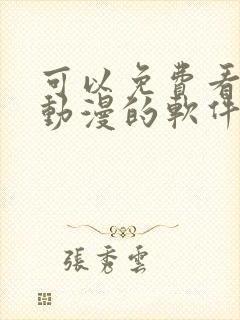 可以免費看
動漫的軟件
張秀雲